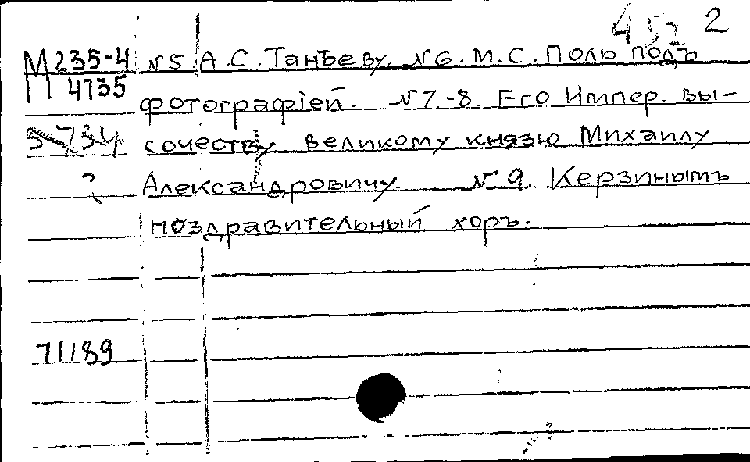 452
М235-4 №5 А.С. Танѣеву. №6. М.С. Поль подъ
П 4735 фотографіей. №7.-8. Его Импер. вы-
3-734 сочеству великому князю Михаилу
? Александровичу. №9. Керзинымъ
поздравительный хоръ.
71189